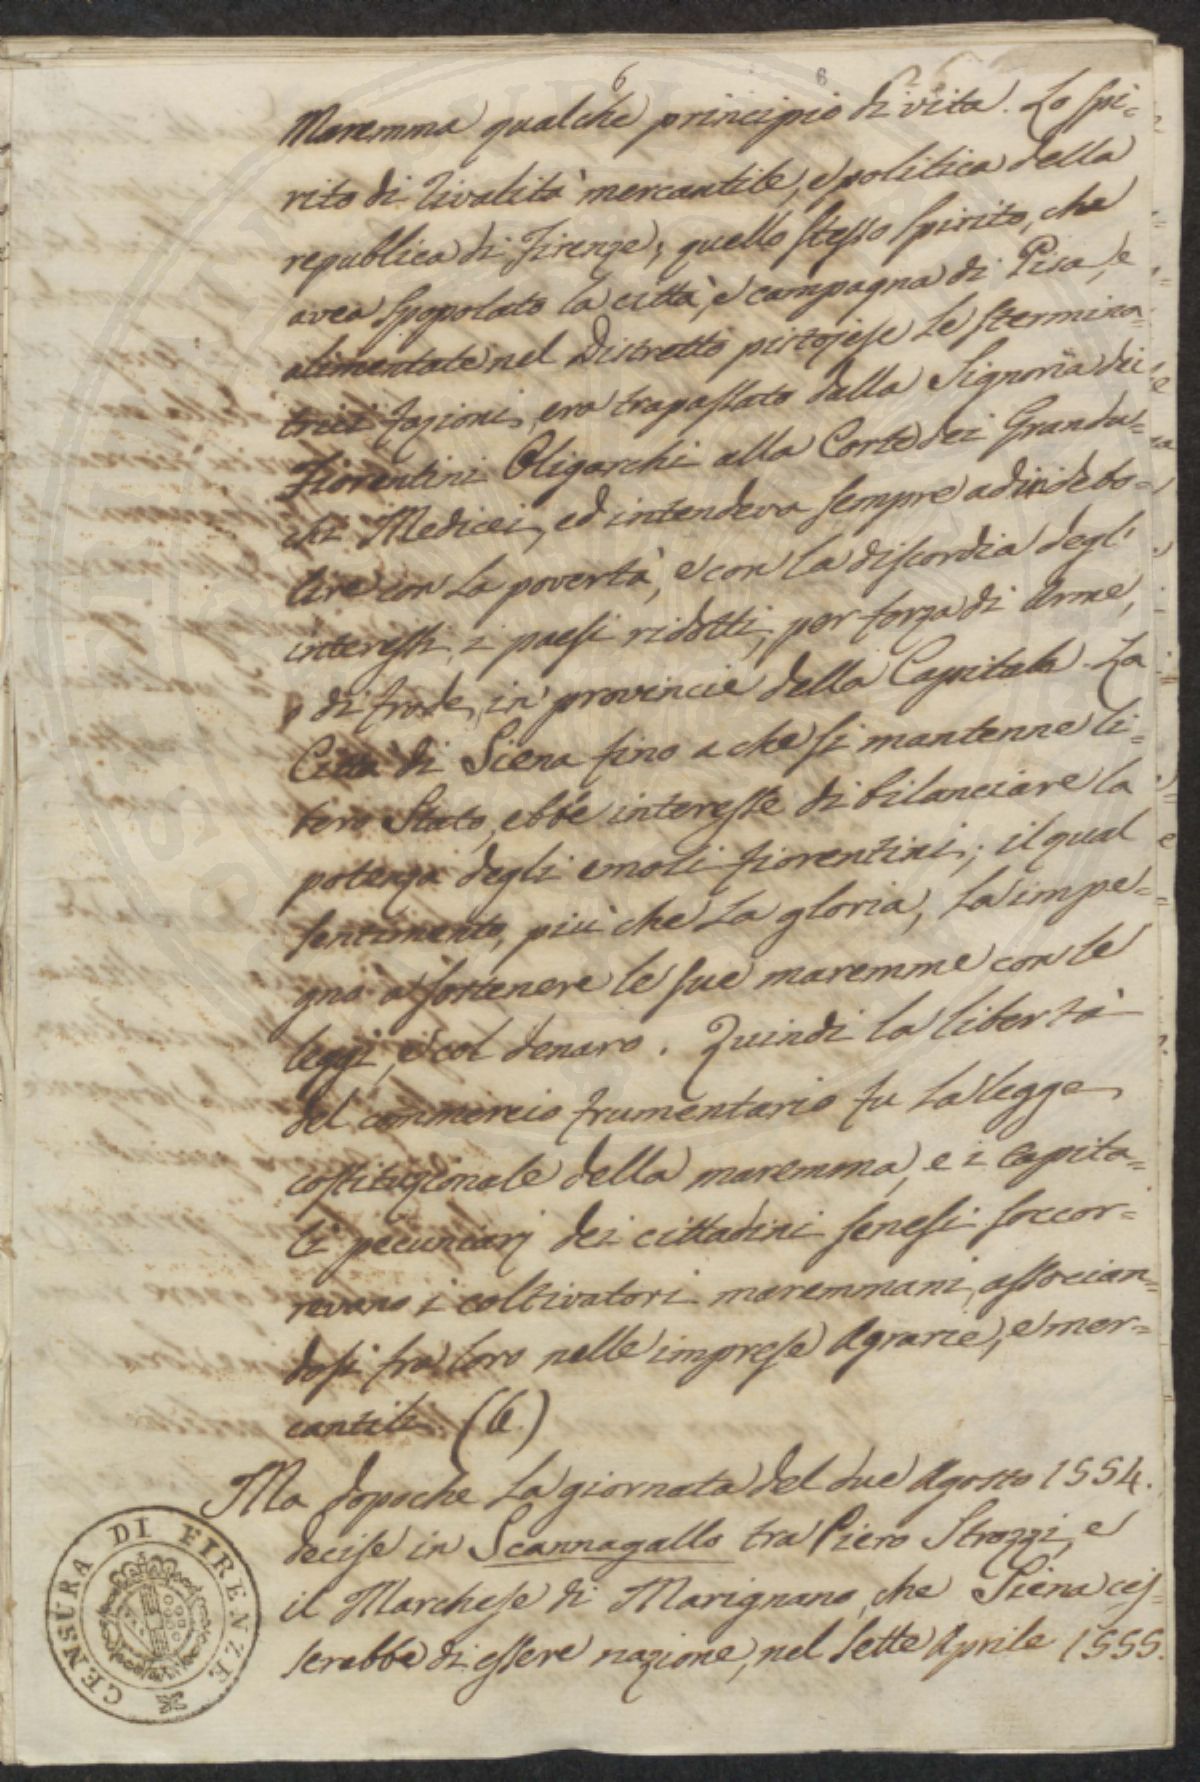 6 8
Maremma qualche principio di vita. Lo spi=
rito di rivalità mercantile, e politica della
republica di Firenze; quello stesso spirito, che
avea spopolato la città, e campagna di Pisa, e
alimentate nel Distretto pistojese le stermina=
trici fazioni, era trapassato dalla Signoria dei
Fiorentini Oligarchi alla Corte dei Grandu=
chi Medicei, ed intendeva sempre ad indebo=
lire con la povertà, e con la discordia degl'
interessi, i paesi ridotti, per forza di Arme,
o di frode, in provincie della Capitale. La
Città di Siena fino a che si mantenne li=
bero Stato, ebbe interesse di bilanciare la
potenza degli emoli fiorentini; il qual
sentimento, più che la gloria, la impe=
gnò a sostenere le sue maremme con le
leggi, e col denaro. Quindi la libertà
del commercio frumentario fu la legge
costituzionale della maremma, e i capita=
li pecuniarj dei cittadini senesi soccor=
revano i coltivatori maremmani, associan=
dosi fra loro nelle imprese Agrarie, e mer=
cantili. (6.)
Ma dopoche la giornata del due Agosto 1554.
decise in Scannagallo tra Piero Strozzi, e
il Marchese di Marignano, che Siena ces=
serebbe di essere nazione, nel sette Aprile 1555.
CENSURA DI FIRENZE